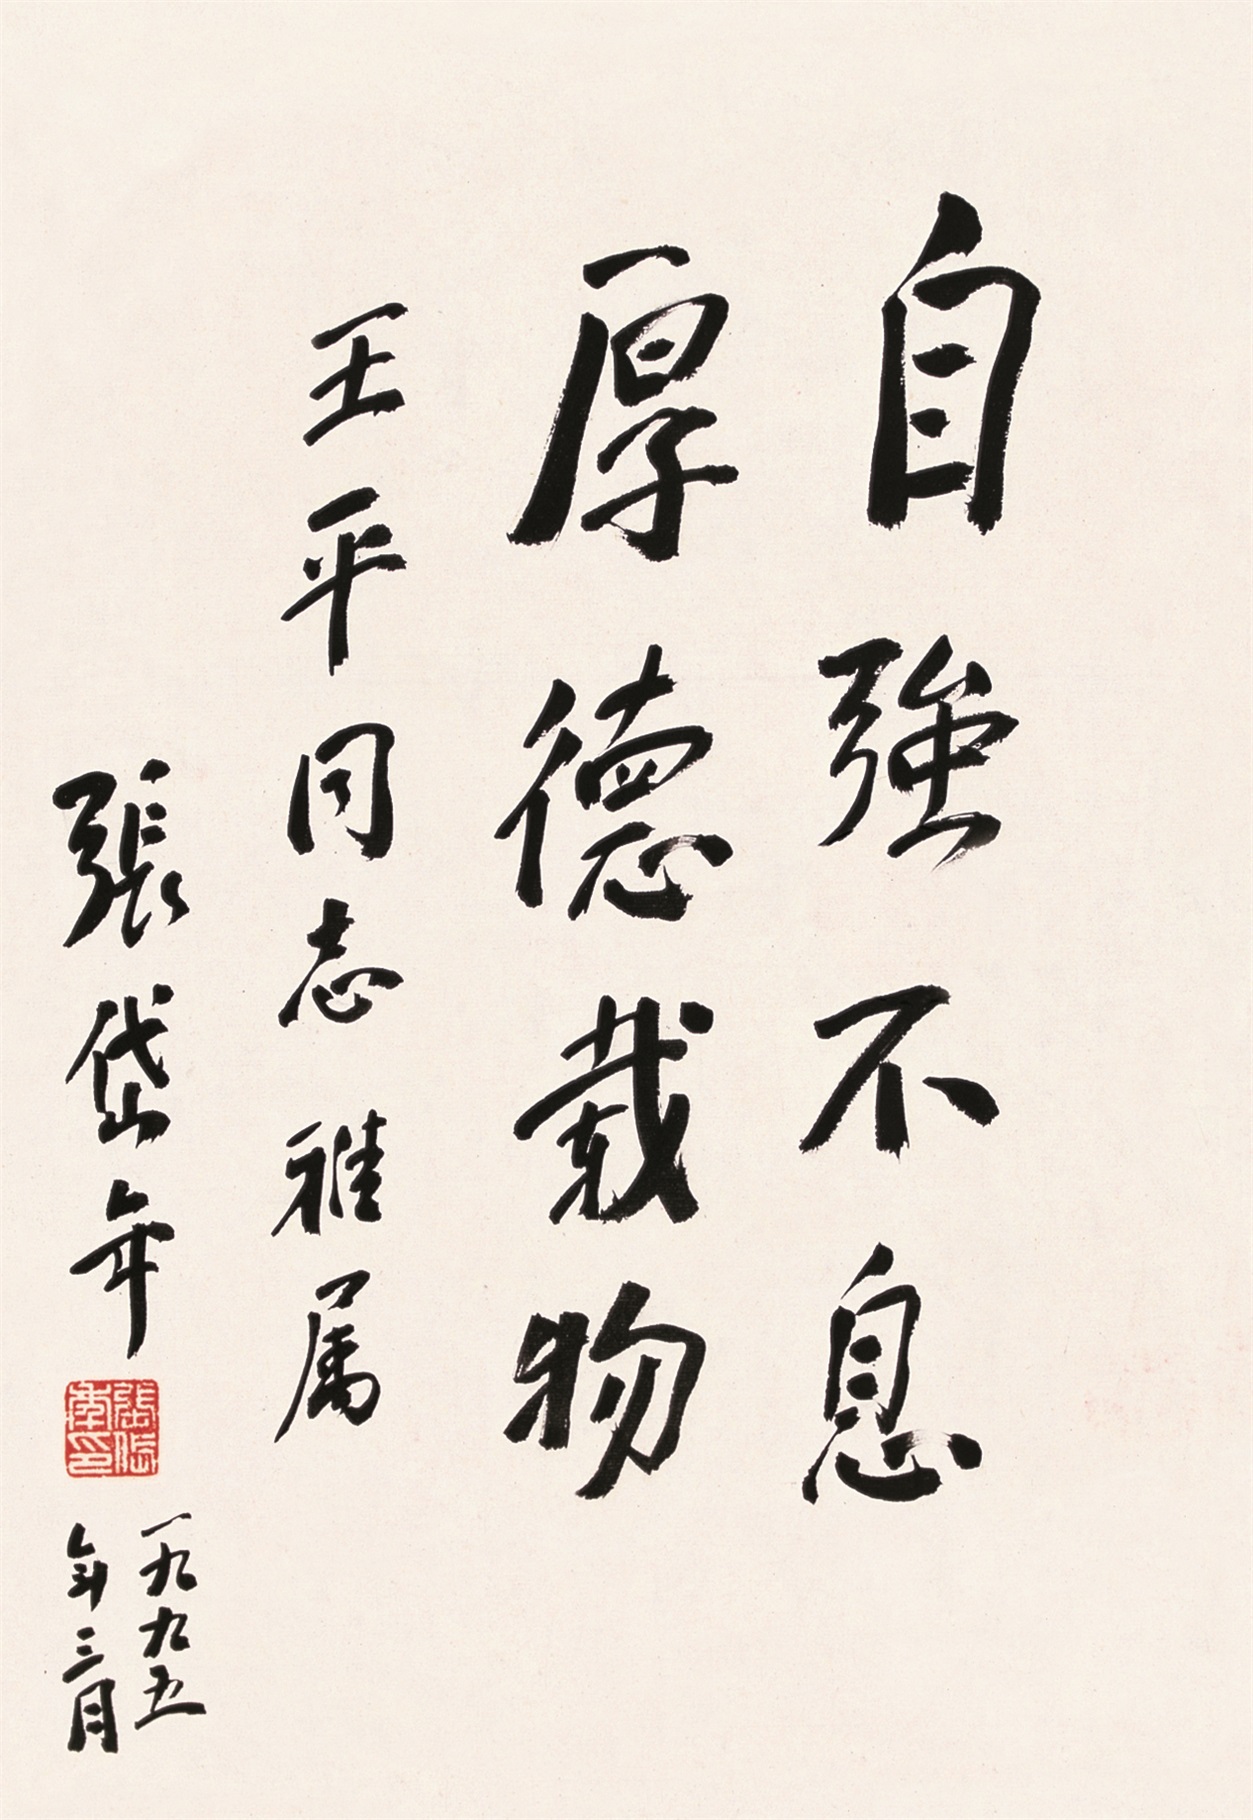 自強不息
厚德载物
王平同志雅属
張岱年
張岱
年印
一九九五
年三月